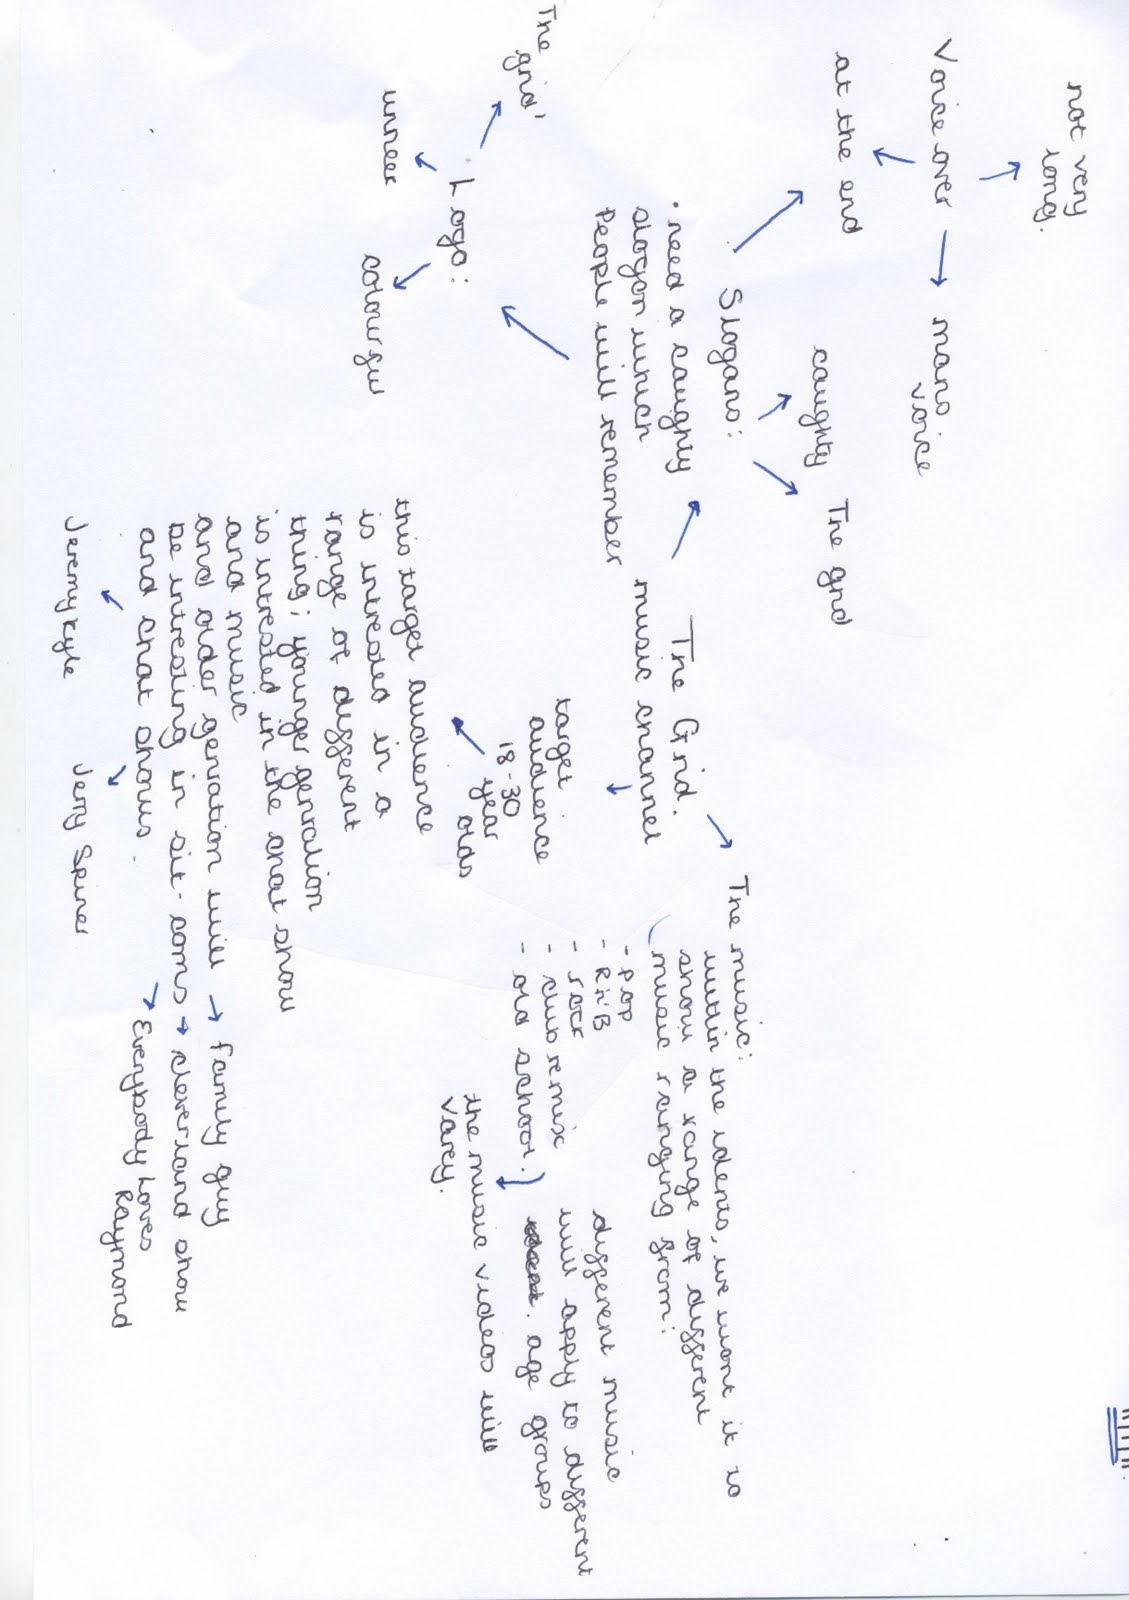 not very
long.
Voice over
mans
voice
at the end
caughty
The grid
Slogans:
· need a caughty
slogan which
People will remember
The grid'
Logo:
colourful
The Grid.
music channel
target
audience
18-30
year
olds
this target audience
is intrested in a
range of different
thing; younger genration
is intrested in the chat show
and music
and older genration will
be intresting in sit-coms
and chat shows.
family guy
cleverland show
Everybody Loves
Raymond
Jeremy Kyle
Jerry Spriner
The music:
within the idents, we want it to
show a range of different
music ranging from:
- pop
- R'n'B
- rock
- club remix
- old school.)
different music
will apply to different
age groups
the music videos will
varey.